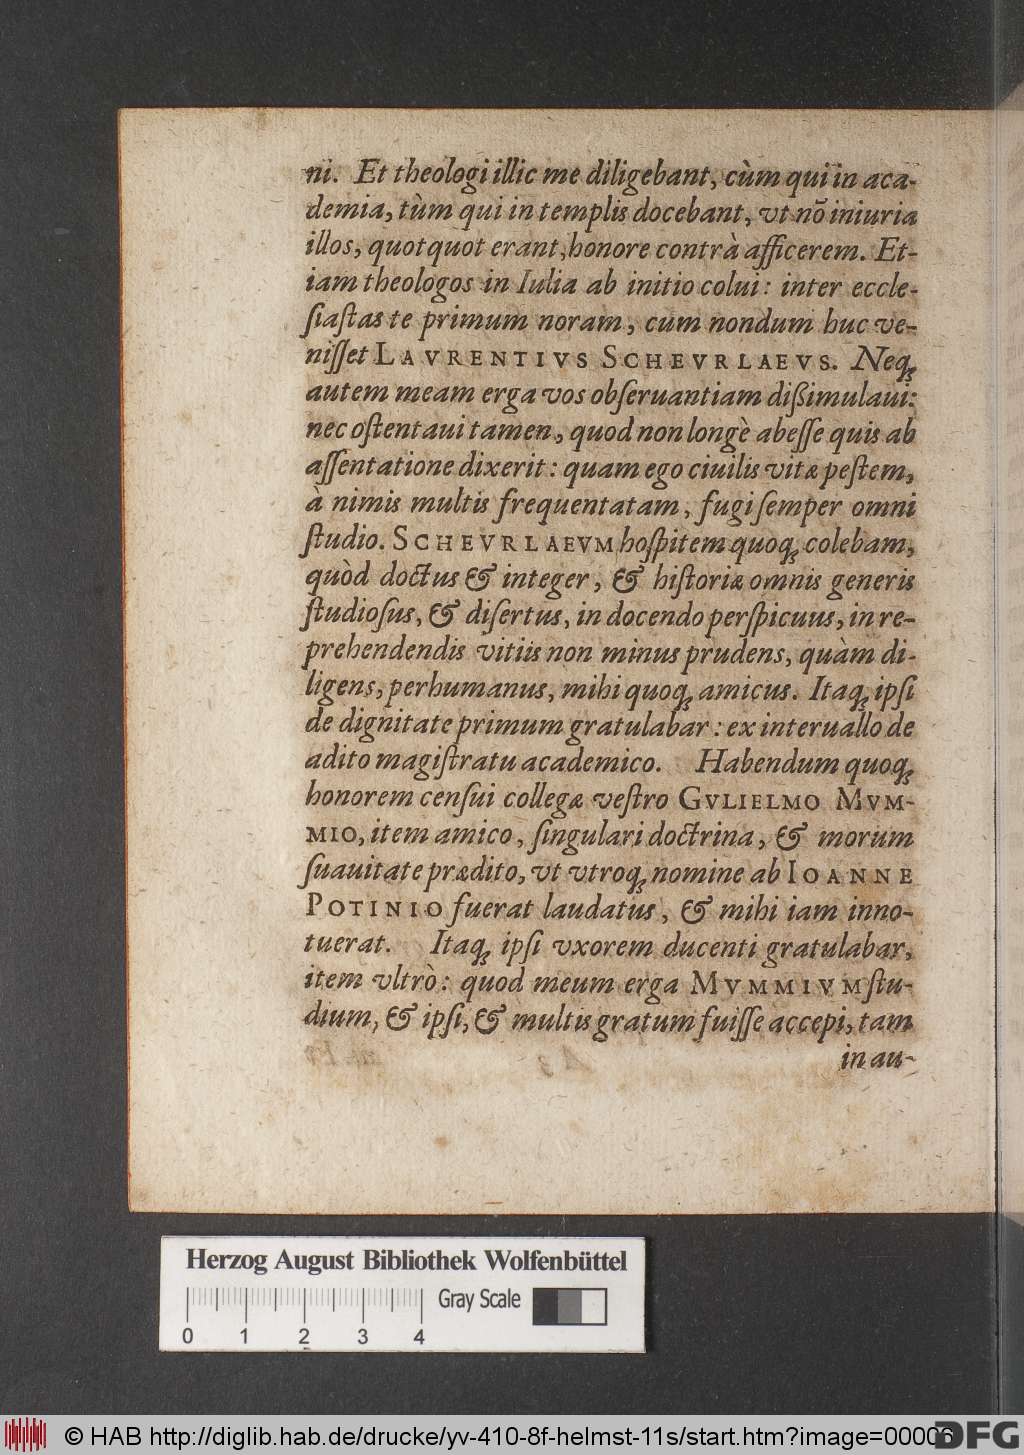 ni. Et theologi illic me diligebant, cùm qui in aca-
demia, tùm qui in templis docebant, vt nō iniuria
illos, quotquot erant, honore contrà afficerem. Et-
iam theologos in Iulia ab initio colui: inter eccle-
ſiaſtas te primum noram, cum nondum huc ve-
niſſet LAVRENTIVS SCHEVRLAEVS. Neq;
autem meam erga vos obſeruantiam dißimulaui:
nec oſtentaui tamen, quod non longè abeſſe quis ab
aſſentatione dixerit: quam ego ciuilis vitæ peſtem,
à nimis multis frequentatam, fugi ſemper omni
ſtudio. SCHEVRLAEVM hoſpitem quoq; colebam,
quòd doctus & integer, & hiſtoriæ omnis generis
ſtudioſus, & diſertus, in docendo perſpicuus, in re-
prehendendis vitiis non minus prudens, quàm di-
ligens, perhumanus, mihi quoq; amicus. Itaq; ipſi
de dignitate primum gratulabar: ex interuallo de
adito magiſtratu academico. Habendum quoq;
honorem cenſui collegæ veſtro GVLIELMO MVM-
MIO, item amico, ſingulari doctrina, & morum
ſuauitate prædito, vt vtroq; nomine ab IOANNE
POTINIO fuerat laudatus, & mihi iam inno-
tuerat. Itaq; ipſi vxorem ducenti gratulabar,
item vltrò: quod meum erga MVMMIVM ſtu-
dium, & ipſi, & multis gratum fuiſſe accepi, tam
in au-
Herzog August Bibliothek Wolfenbüttel
Gray Scale
0 1 2 3 4
© HAB http://diglib.hab.de/drucke/yv-410-8f-helmst-11s/start.htm?image=00006
DFG